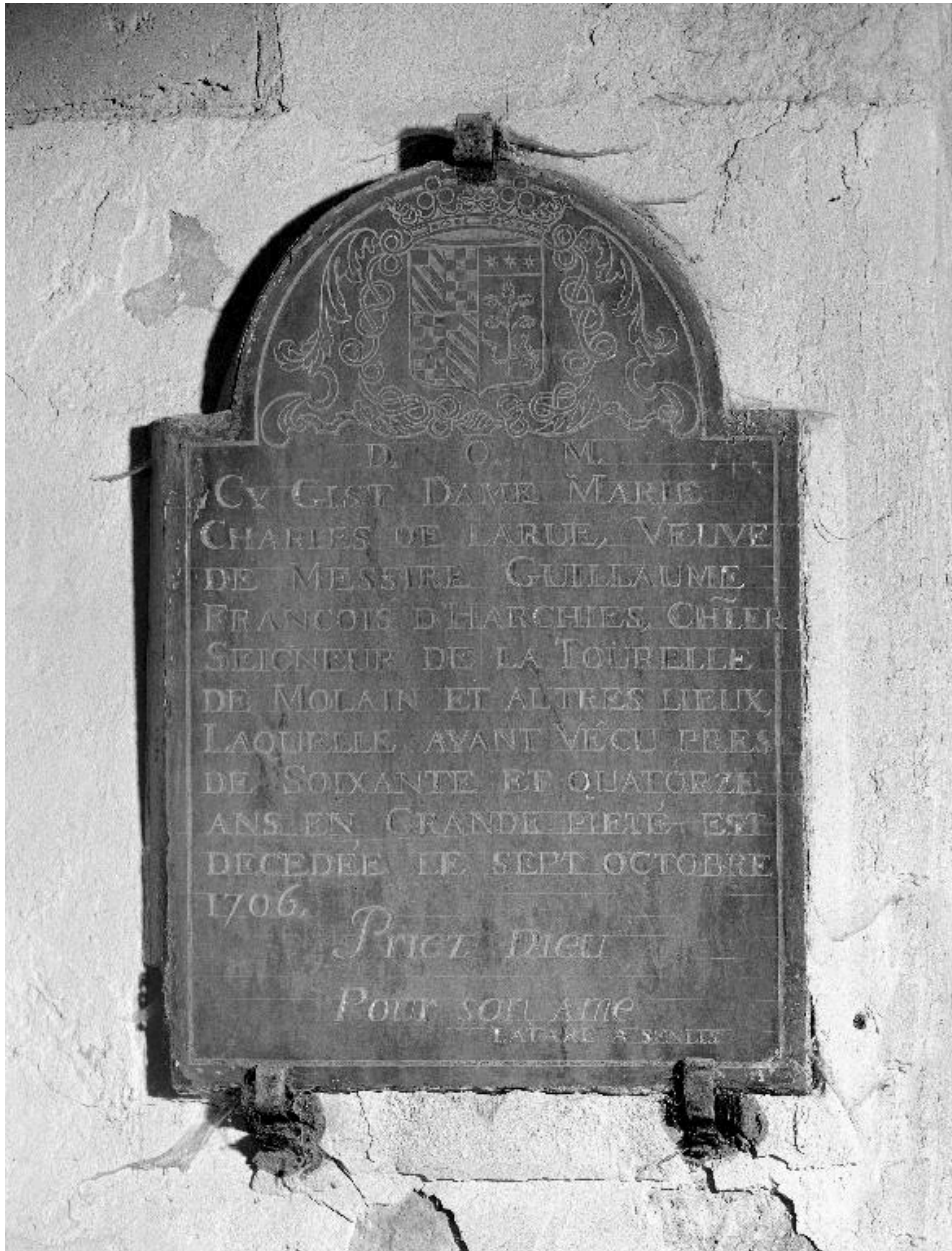 D. O. M.
CY GIST DAME MARIE
CHARLES DE LARUE, VEUVE
DE MESSIRE GUILLAUME
FRANCOIS D'HARCHIES, CHL̃ER,
SEIGNEUR DE LA TOURELLE
DE MOLAIN ET AUTRES LIEUX,
LAQUELLE AYANT VÊCU PRES
DE SOIXANTE ET QUATORZE
ANS EN GRANDE PIETÉ EST
DECEDÉE LE SEPT OCTOBRE
1706.
Priez Dieu
Pour son ame
A SENLIS